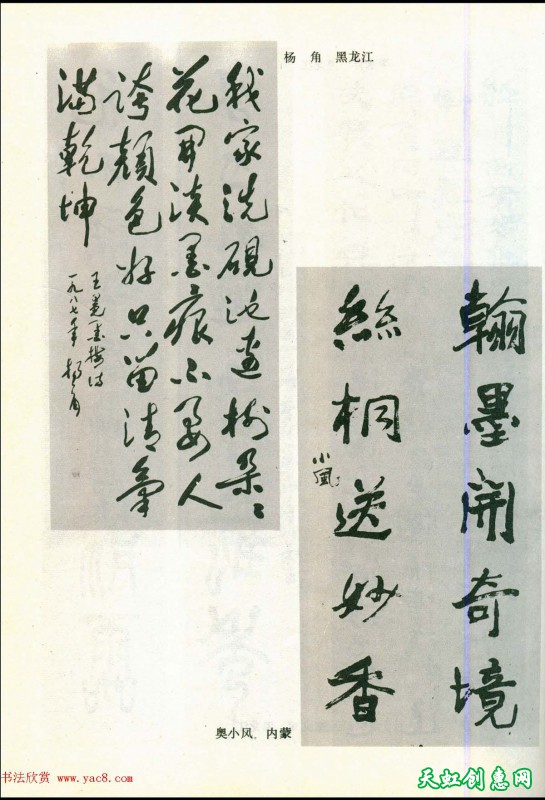 杨 角 黑龙江
我家洗硯池边树朵〻
花開淡墨痕不要人
誇顏色好只留清氣
满乾坤
王冕墨梅诗
一九八七年 杨角
翰墨開奇境
絲桐送妙香
小風
奥小风 内蒙
书法欣赏 www.yac8.com
天虹创意网